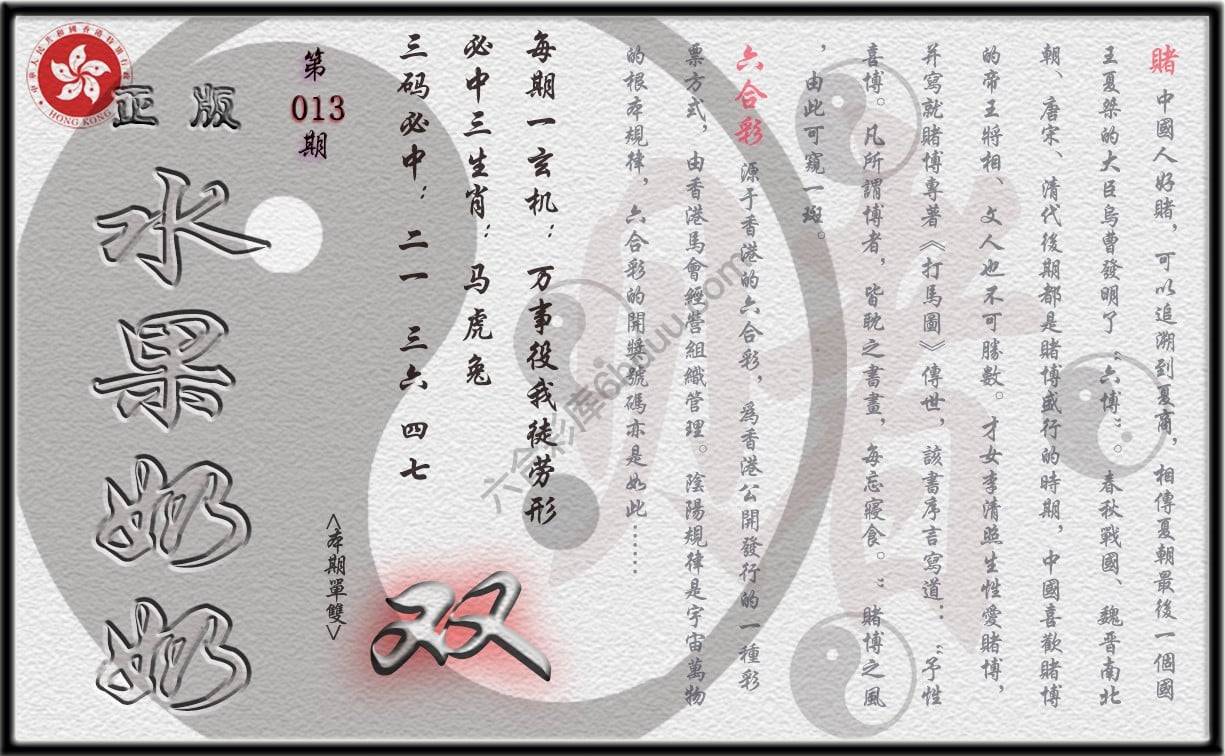 賭 中國人好賭，可以追溯到夏商，相傳夏朝最後一個國
王夏桀的大臣烏曹發明了“六博”。春秋戰國、魏晋南北
朝、唐宋、清代後期都是賭博盛行的時期，中國喜歡賭博
的帝王將相、文人也不可勝數。才女李清照生性愛賭博，
并寫就賭博專著《打馬圖》傳世，該書序言寫道：“予性
喜博。凡所謂博者，皆耽之書畫，每忘寢食。”賭博之風
，由此可窺一斑。
六合彩 源于香港的六合彩，爲香港公開發行的一種彩
票方式，由香港馬會經營組織管理。陰陽規律是宇宙萬物
的根本規律，六合彩的開獎號碼亦是如此……
每期一玄机：万事役我徒劳形
必中三生肖：马虎兔
三码必中：二一 三六 四七
第
013
期
<本期單雙>
双
正版
水果奶奶
中華人民共和國香港特別行政區
HONG KONG
六合彩库6htuuu.com